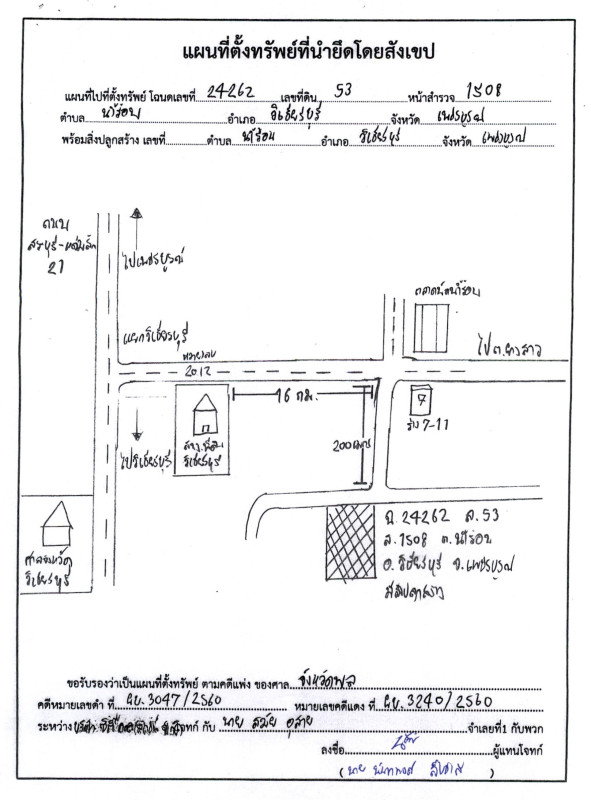 แผนที่ตั้งทรัพย์ที่นำยึดโดยสังเขป
แผนที่ไปที่ตั้งทรัพย์ โฉนดเลขที่ 24262 เลขที่ดิน 53 หน้าสำรวจ 1508
ตำบล น้ำร้อน อำเภอ วิเชียรบุรี จังหวัด เพชรบูรณ์
พร้อมสิ่งปลูกสร้าง เลขที่ ตำบล น้ำร้อน อำเภอ วิเชียรบุรี จังหวัด เพชรบูรณ์
ถนน
สระบุรี-หล่มสัก
21
ไปเพชรบูรณ์
ตลาดนัดน้ำร้อน
แยกวิเชียรบุรี
หมายเลข
2012
ไปต.ยางสาว
16 กม.
7
ร้าน 7-11
200 เมตร
ไปวิเชียรบุรี
วิเชียรบุรี
ศาลจังหวัด
วิเชียรบุรี
ฉ. 24262 ล. 53
ส. 1508 ต. น้ำร้อน
อ. วิเชียรบุรี จ. เพชรบูรณ์
ขอรับรองว่าเป็นแผนที่ตั้งทรัพย์ ตามคดีแพ่ง ของศาล จังหวัดพล
คดีหมายเลขดำ ที่ ผบ. 3047/2560 หมายเลขคดีแดง ที่ ผบ. 3240/2560
ระหว่าง โจทก์ กับ นาย สมัย อุสาย จำเลยที่1 กับพวก
ลงชื่อ ผู้แทนโจทก์
( นาย )